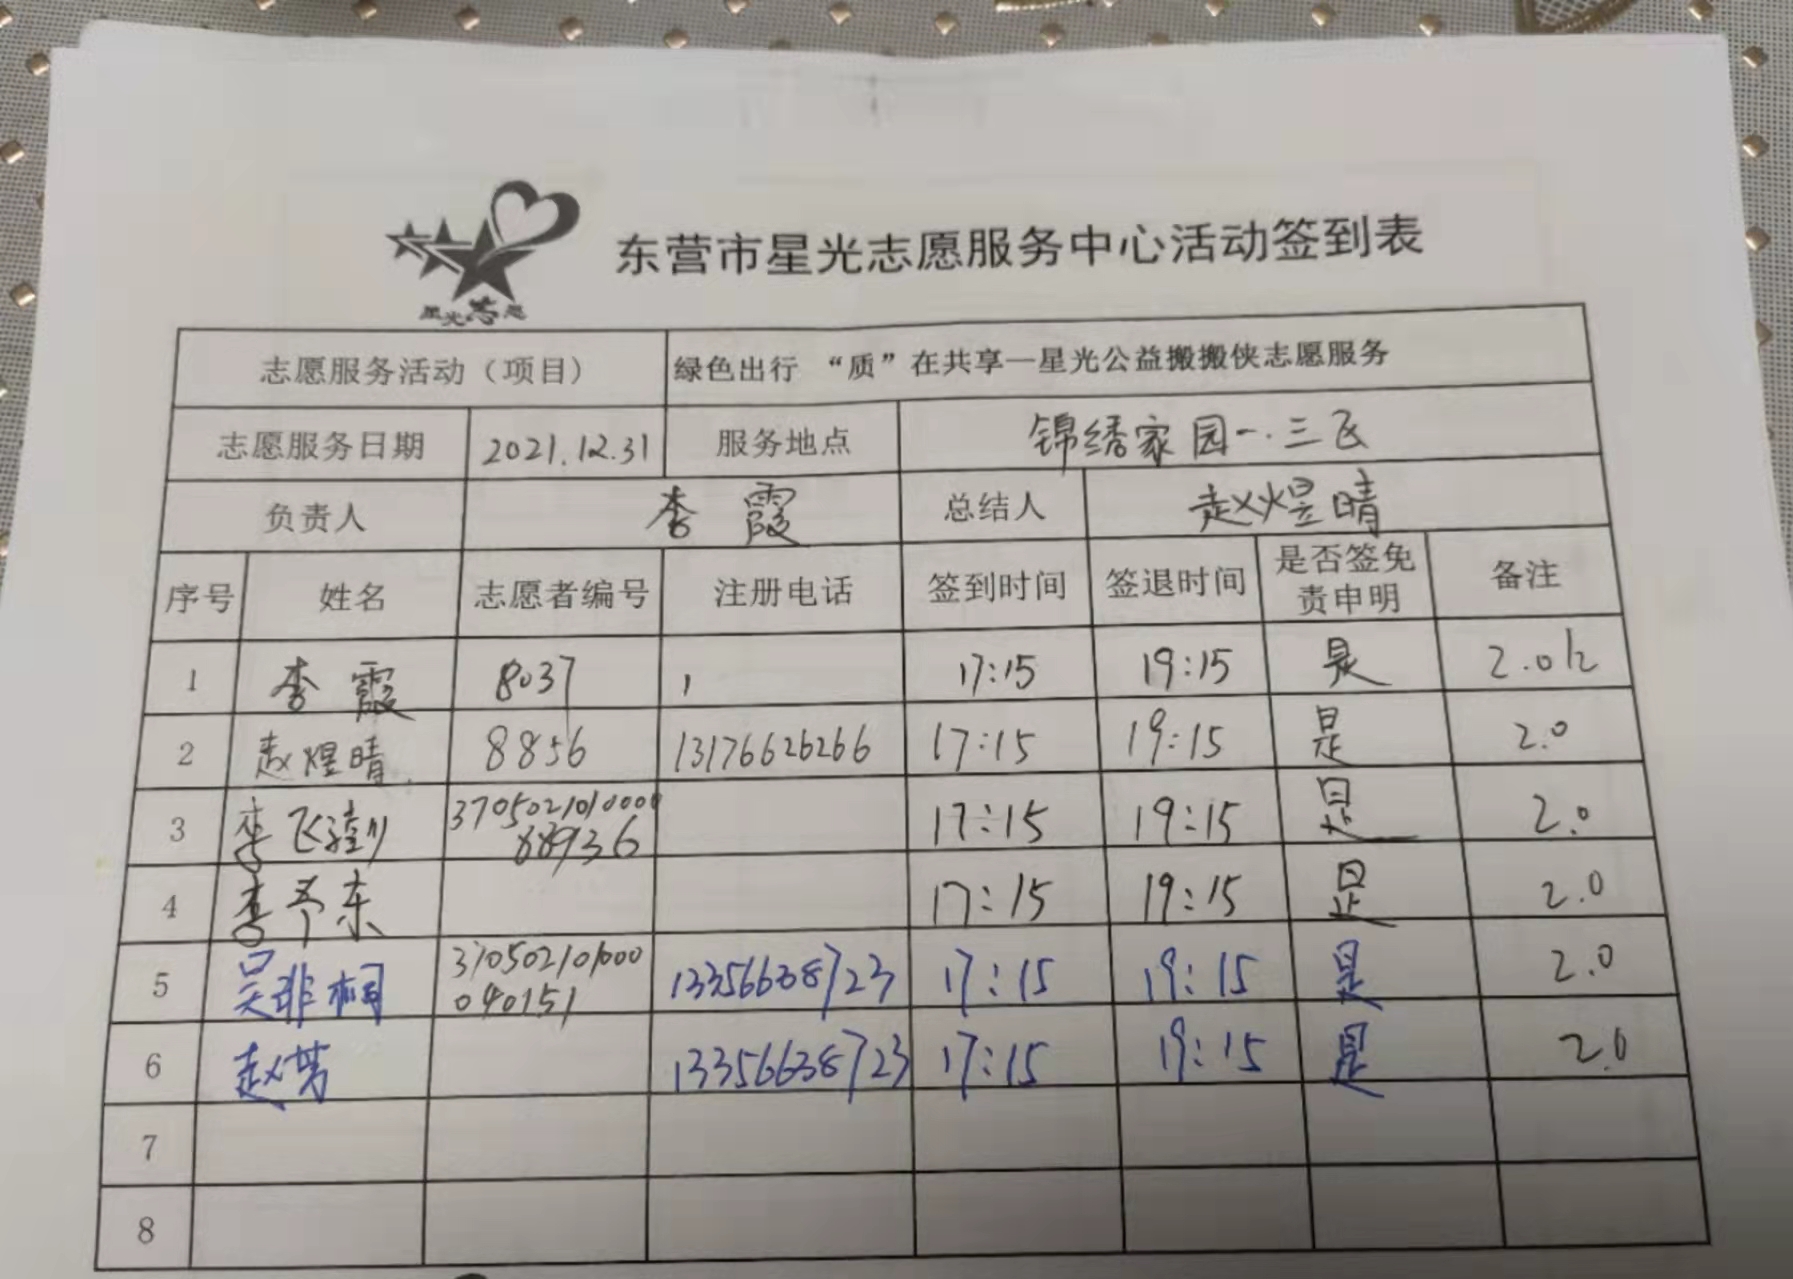 星光志愿
东营市星光志愿服务中心活动签到表
志愿服务活动（项目） 绿色出行 “质”在共享—星光公益搬搬侠志愿服务
志愿服务日期 2021.12.31 服务地点 锦绣家园一.三区
负责人 李霞 总结人 赵煜晴
序号 姓名 志愿者编号 注册电话 签到时间 签退时间 是否签免责申明 备注
1 李霞 8037 17:15 19:15 是 2.0h
2 赵煜晴 8856 13176626266 17:15 19:15 是 2.0
3 李飞 3705021010000
88936 17:15 19:15 是 2.0
4 李东 17:15 19:15 是 2.0
5 吴非桐 370502101000
040151 13356638723 17:15 19:15 是 2.0
6 赵芳 13356638723 17:15 19:15 是 2.0
7
8